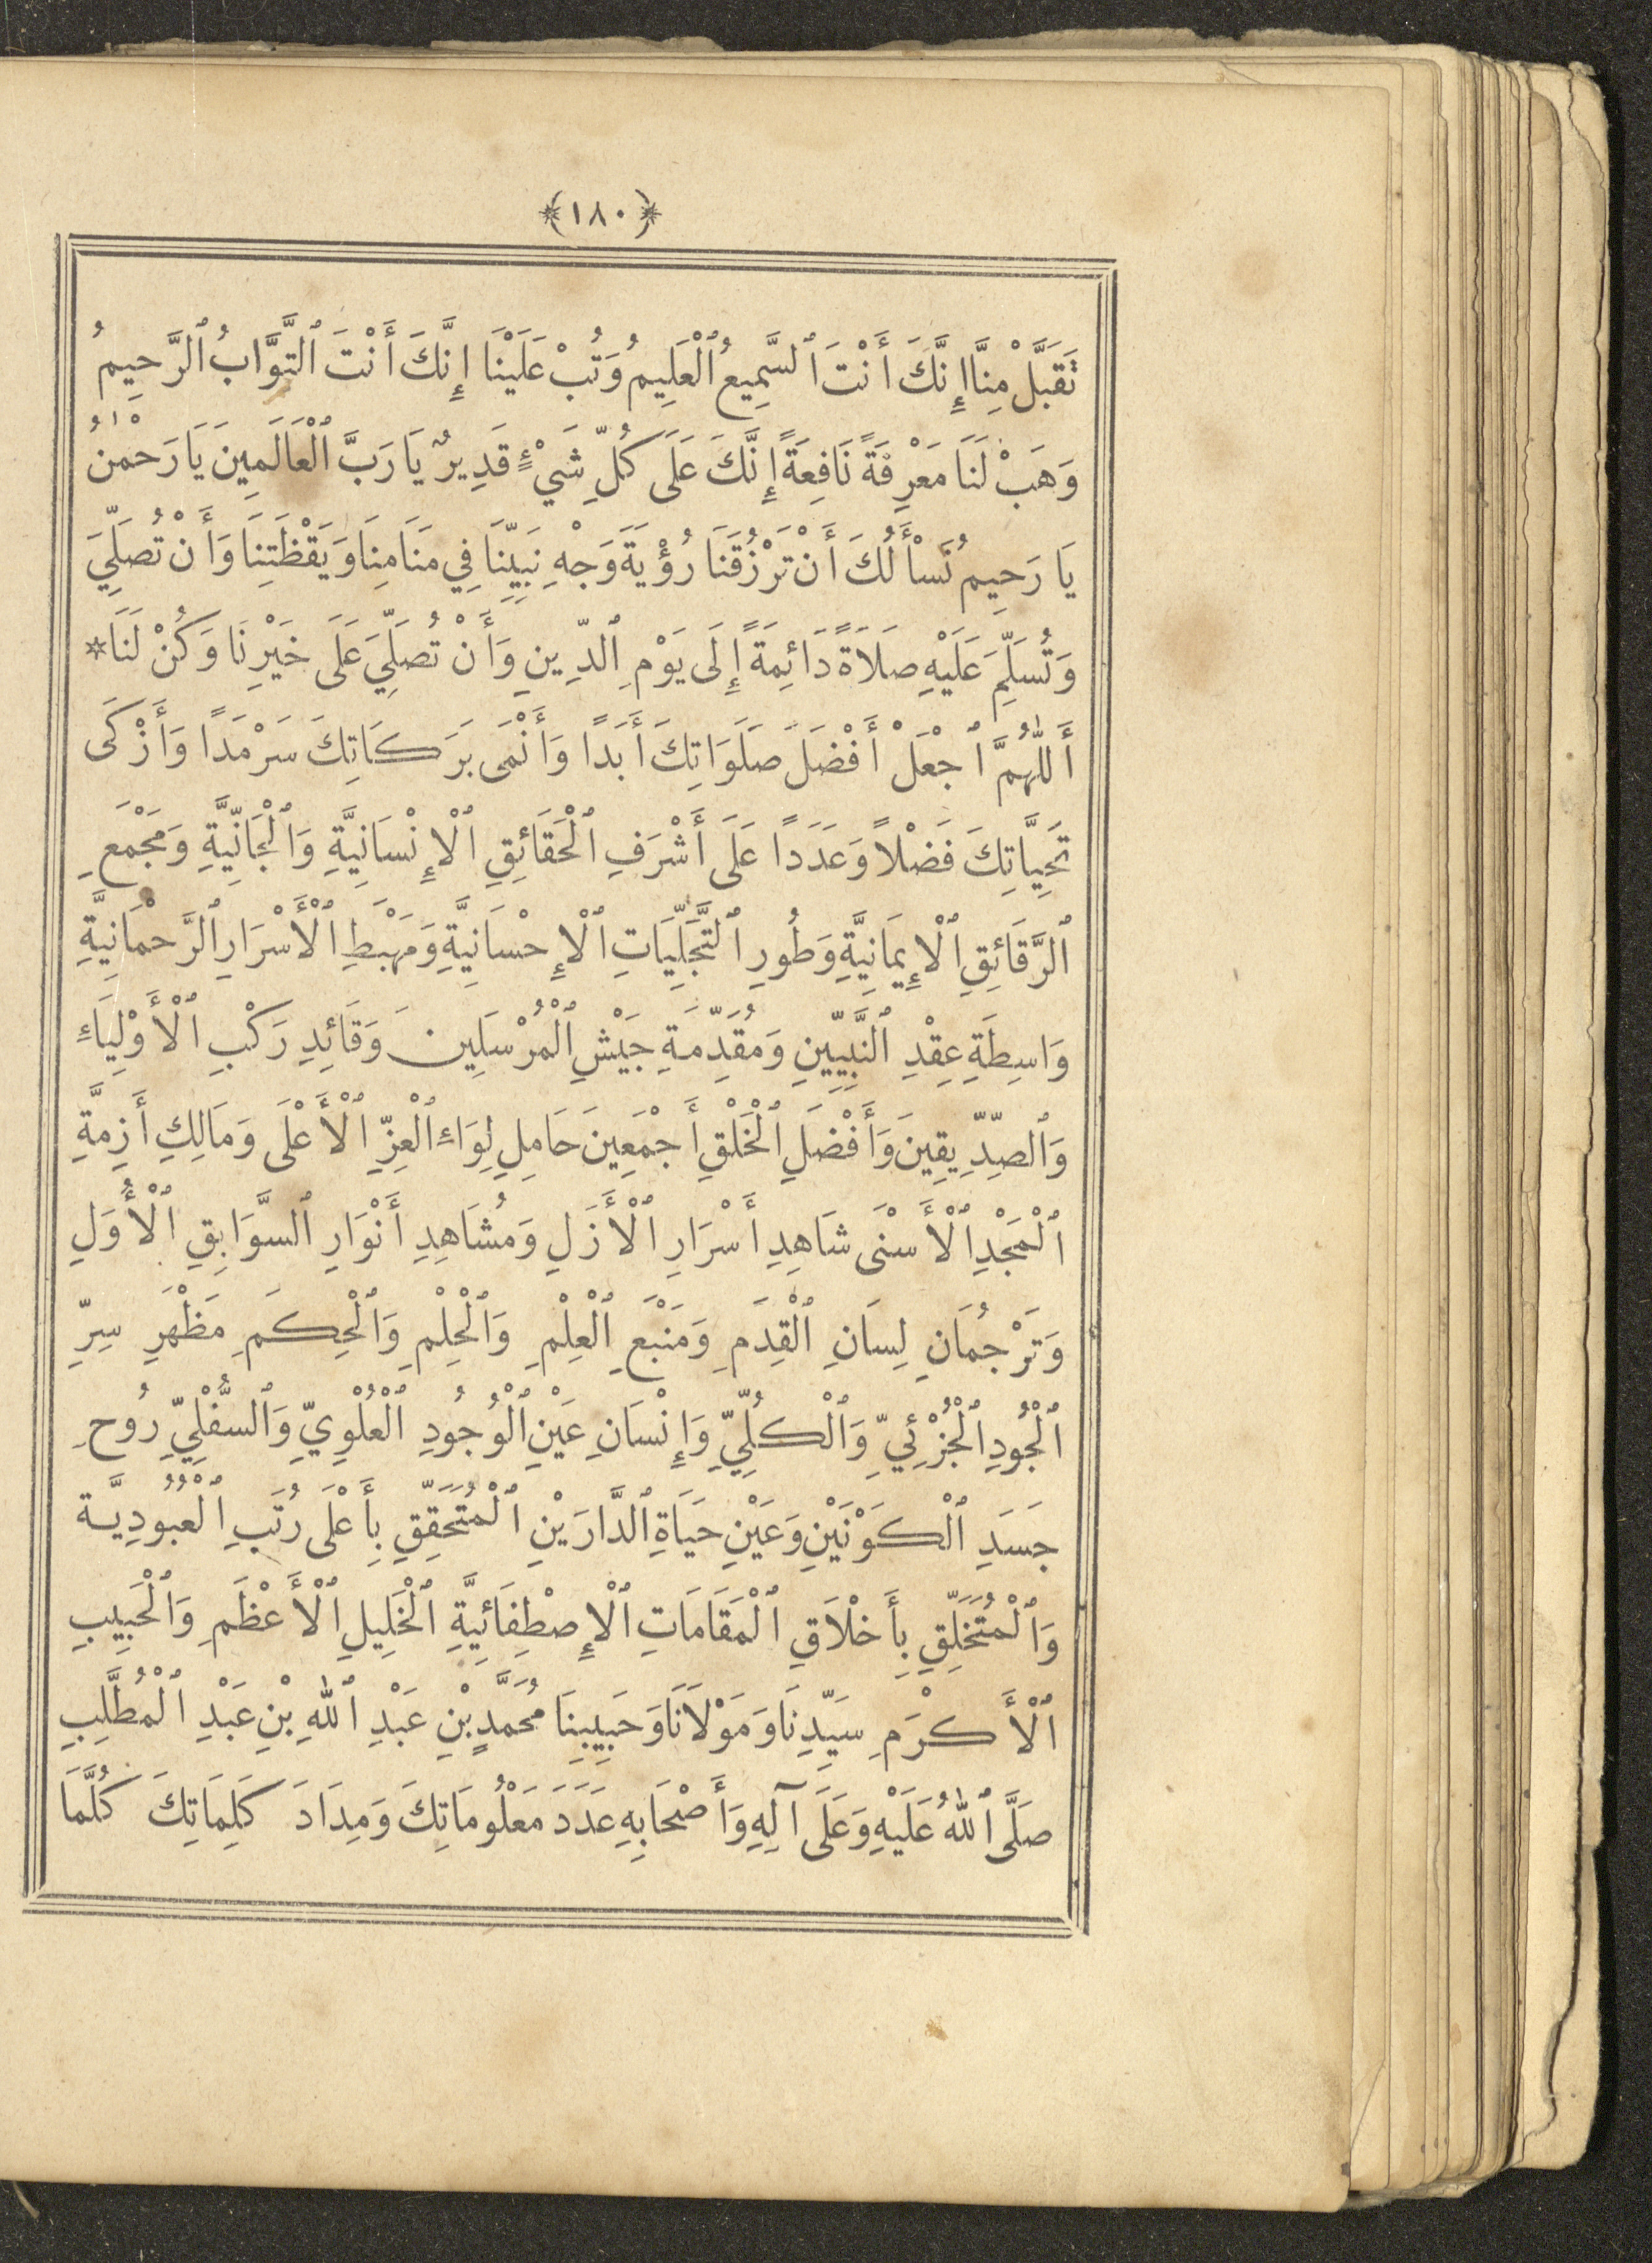 ﴿١٨٠﴾
تَقَبَّلْ مِنَّا إِنَّكَ أَنْتَ ٱلسَّمِيعُ ٱلْعَلِيمُ وَتُبْ عَلَيْنَا إِنَّكَ أَنْتَ ٱلتَّوَّابُ ٱلرَّحِيمُ
وَهَبْ لَنَا مَعْرِفَةً نَافِعَةً إِنَّكَ عَلَى كُلِّ شَيْءٍ قَدِيرٌ يَا رَبَّ ٱلْعَالَمِينَ يَا رَحْمٰنُ
يَا رَحِيمُ نَسْأَلُكَ أَنْ تَرْزُقَنَا رُؤْيَةَ وَجْهِ نَبِيِّنَا فِي مَنَامِنَا وَيَقْظَتِنَا وَأَنْ تُصَلِّيَ
وَتُسَلِّمَ عَلَيْهِ صَلَاةً دَائِمَةً إِلَى يَوْمِ ٱلدِّينِ وَأَنْ تُصَلِّيَ عَلَى خَيْرِنَا وَكُنْ لَنَا *
أَللّٰهُمَّ ٱجْعَلْ أَفْضَلَ صَلَوَاتِكَ أَبَدًا وَأَنْمَى بَرَكَاتِكَ سَرْمَدًا وَأَزْكَى
تَحِيَّاتِكَ فَضْلًا وَعَدَدًا عَلَى أَشْرَفِ ٱلْحَقَائِقِ ٱلْإِنْسَانِيَّةِ وَٱلْجَانِّيَّةِ وَمَجْمَعِ
ٱلرَّقَائِقِ ٱلْإِيمَانِيَّةِ وَطُورِ ٱلتَّجَلِّيَاتِ ٱلْإِحْسَانِيَّةِ وَمَهْبَطِ ٱلْأَسْرَارِ ٱلرَّحْمَانِيَّةِ
وَاسِطَةِ عِقْدِ ٱلنَّبِيِّينَ وَمُقَدِّمَةِ جَيْشِ ٱلْمُرْسَلِينَ وَقَائِدِ رَكْبِ ٱلْأَوْلِيَاءِ
وَٱلصِّدِّيقِينَ وَأَفْضَلِ ٱلْخَلْقِ أَجْمَعِينَ حَامِلِ لِوَاءِ ٱلْعِزِّ ٱلْأَعْلَى وَمَالِكِ أَزِمَّةِ
ٱلْمَجْدِ ٱلْأَسْنَى شَاهِدِ أَسْرَارِ ٱلْأَزَلِ وَمُشَاهِدِ أَنْوَارِ ٱلسَّوَابِقِ ٱلْأُوَلِ
وَتَرْجُمَانِ لِسَانِ ٱلْقِدَمِ وَمَنْبَعِ ٱلْعِلْمِ وَٱلْحِلْمِ وَٱلْحِكَمِ مَظْهَرِ سِرِّ
ٱلْجُودِ ٱلْجُزْئِيِّ وَٱلْكُلِّيِّ وَإِنْسَانِ عَيْنِ ٱلْوُجُودِ ٱلْعُلْوِيِّ وَٱلسُّفْلِيِّ رُوحِ
جَسَدِ ٱلْكَوْنَيْنِ وَعَيْنِ حَيَاةِ ٱلدَّارَيْنِ ٱلْمُتَحَقِّقِ بِأَعْلَى رُتَبِ ٱلْعُبُودِيَّة
وَٱلْمُتَخَلِّقِ بِأَخْلَاقِ ٱلْمَقَامَاتِ ٱلْإِصْطِفَائِيَّةِ ٱلْخَلِيلِ ٱلْأَعْظَمِ وَٱلْحَبِيبِ
ٱلْأَكْرَمِ سَيِّدِنَا وَمَوْلَانَا وَحَبِيبِنَا مُحَمَّدِ بْنِ عَبْدِ ٱللّٰهِ بْنِ عَبْدِ ٱلْمُطَّلِبِ
صَلَّى ٱللّٰهُ عَلَيْهِ وَعَلَى آلِهِ وَأَصْحَابِهِ عَدَدَ مَعْلُومَاتِكَ وَمِدَادَ كَلِمَاتِكَ كُلَّمَا